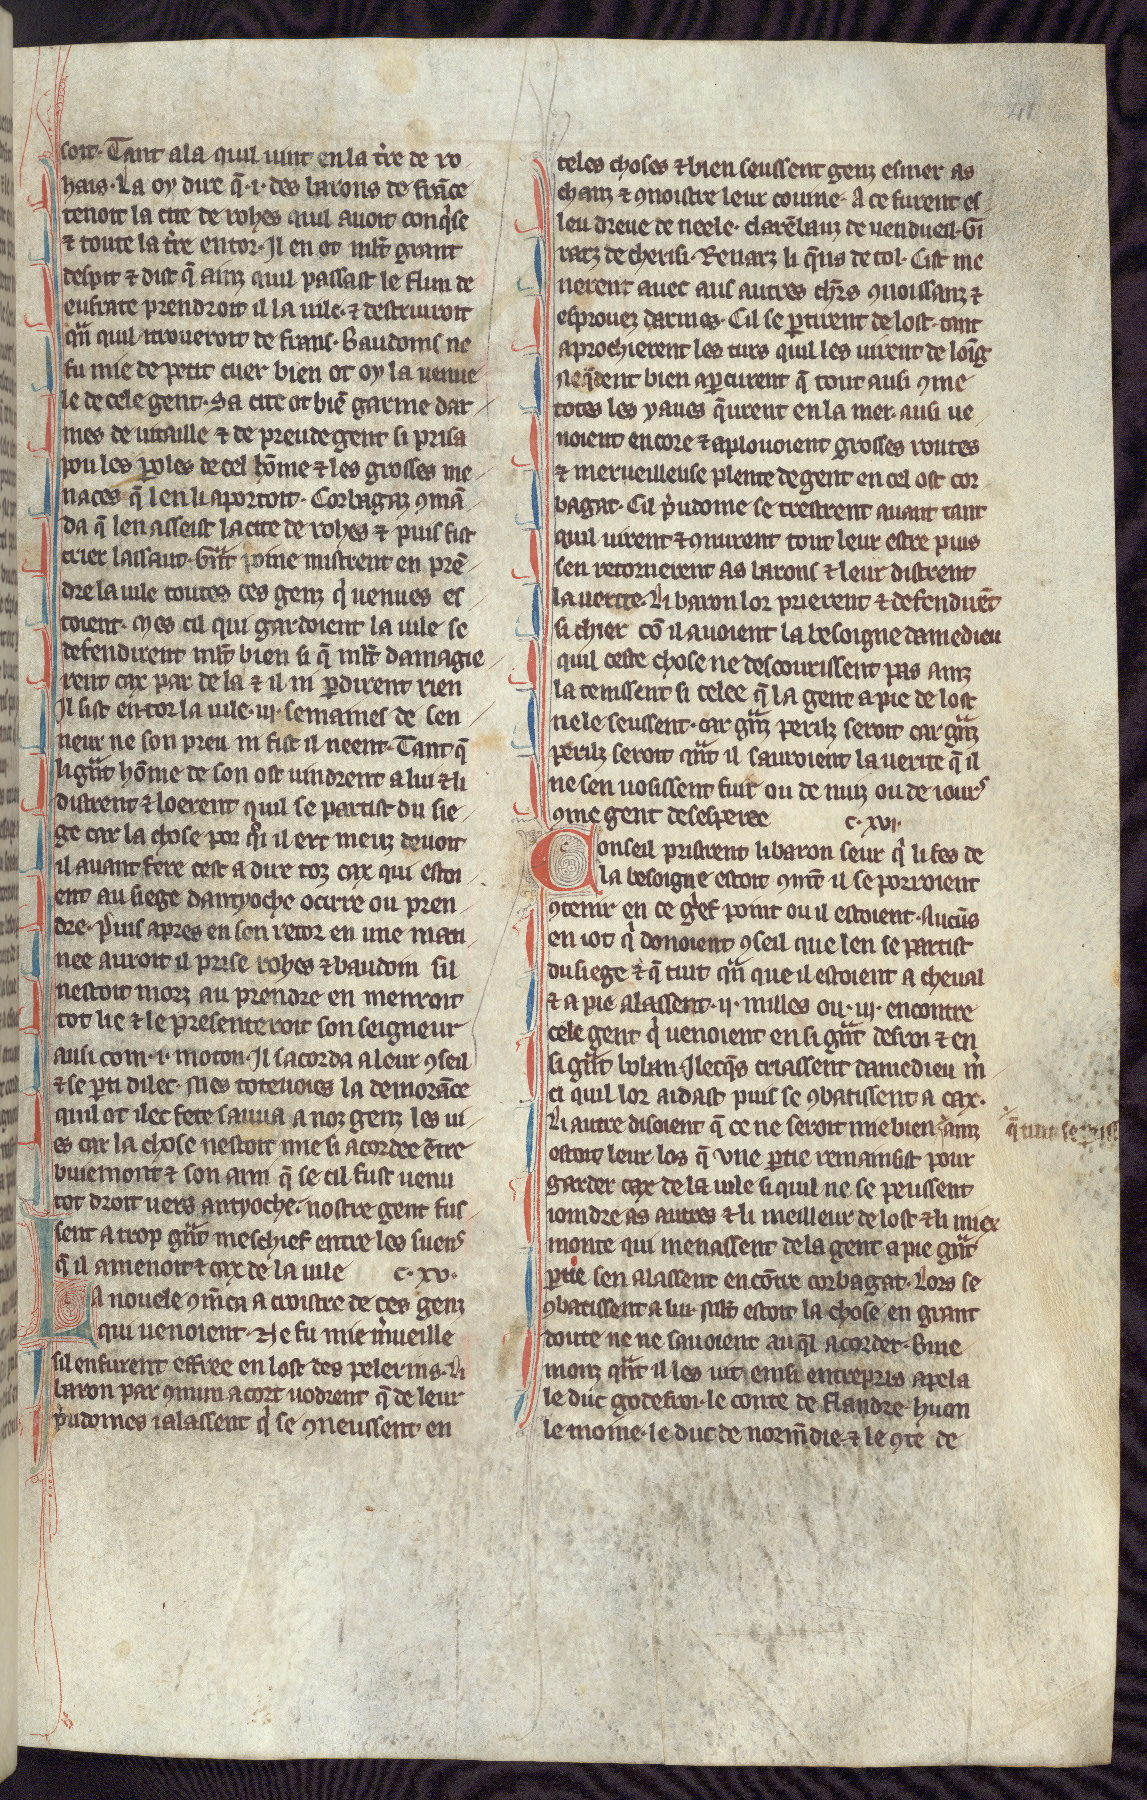 soit. Tant ala quil uint en la tr̄re de ro
hais. La oy dire q̄ .i. des barons de frāce
tenoit la cite de rohes quil auoit conq̄se
& toute la tr̄re entor. Il en ot ml̄t grant
despit & dist q̄ ainz quil passast le flun de
eufrate prendroit il la uile. & destruiroit
qn̄ quil troueroit de frans. Baudoins ne
fu mie de petit cuer bien ot oy la uenue
le de cele gent. Sa cite ot biē garnie dar
mes de uitaille & de preude gent si prisa
pou les ꝑoles de cel hōme & les grosses me
naces q̄ len li aportoit. Corbagaz ꝯmā
da q̄ len asseist la cite de rohes & puis fist
crier lassaut. Gn̄t poine mistrent en prē
dre la uile toutes ces genz q̓ uenues es
toient. Mes cil qui gardoient la uile se
defendirent ml̄t bien si q̄ ml̄t damagie
rent cax par de la & il ni ꝑdirent rien
Il sist entor la uile .iij. semaines de sen
neur ne son preu ni fist il neent. Tant q̄
li gn̄t hōme de son ost uindrent a lui & li
distrent & loerent quil se partist du sie
ge car la chose por q̓i il ert meuz deuoit
il auant fere cest a dire toz cax qui estoi
ent au siege dantyoche ocirre ou pren
dre. Puis apres en son retor en une mati
nee auroit il prise rohes & baudoin sil
nestoit morz au prendre en menroit
tot lie & le presenteroit son seigneur
ausi com .i. moton. Il sacorda a leur ꝯseil
& se ꝑti dilec. Mes toteuoies la demorāce
quil ot ilec fete sauua a noz genz les ui
es car la chose nestoit mie si acordee ētre
buiemont & son ami q̄ se cil fust uenu
tot droit uers antyoche. nostre gent fus
sent a trop gn̄t meschief entre les suens
q̄ il amenoit & cax de la uile c. xv.
La nouele ꝯm̄ca a croistre de ces genz
qui uenoient. Ne fu mie m̓ueille
sil en furent effree en lost des pelerins. Li
baron par ꝯmun acort uodrent q̄ de leur
p̓udomes i alassent q̓ se ꝯneussent en
teles choses & bien seussent genz esmer as
chanz & ꝯnoistre leur couine. A ce furent es
leu dreue de neele. clarēbauz de uendueil. Gi
rarz de cherisi. Renarz li q̄ns de tol. Cist me
nerent auec aus autres chr̄s ꝯnoissanz &
esprouez darmes. Cil se ꝑtirent de lost. tant
aprochierent les turs quil les uirent de loīg
Neq̄dent bien aꝑcurent q̄ tout ausi ꝯme
totes les yaues q̄urent en la mer. ausi ue
noient encore & aplouoient grosses routes
& merueilleuse plente de gent en cel ost cor
bagat. Cil p̓udome se trestrent auant tant
quil uirent & ꝯnurent tout leur estre puis
sen retornerent as barons & leur distrent
la uerite. Li baron lor prierent & defendirēt
si chier cō il auoient la besoigne damedieu
quil ceste chose ne descourissent pas ainz
la tenissent si celee q̄ la gent a pie de lost
ne le seussent. car gn̄z perilz seroit car gn̄z
perilz seroit qn̄t il sauroient la uerite q̄ il
ne sen uosissent fuir ou de nuiz ou de iours
ꝯme gent desesperee c. xvi.
Conseil pristrent li baron seur q̓ li fes de
la besoigne estoit ꝯmēt il se porroient
ꝯtenir en ce g̓ef point ou il estoient. Aucūs
en i ot q̓ donoient ꝯseil que len se partist
du siege & q̄ tuit qn̄ que il estoient a cheual
& a pie alassent .ij. milles ou .iij. encontre
cele gent q̓ uenoient en si gn̄t desroi & en
si gn̄t boban. Ilecq̄s criassent damedieu m̓
ci quil lor aidast puis se ꝯbatissent a cax.
Li autre disoient q̄ ce ne seroit mie bien ainz
estoit leur los q̄ une ꝑtie remainsist pour
garder cax de la uile si quil ne se peussent
ioindre as autres & li meilleur de lost & li miex
monte qui menassent de la gent a pie gn̄t
ꝑtie sen alassent encōtre corbagat. Lors se
ꝯbatissent a lui. Ml̄t estoit la chose en grant
doute ne ne sauoient auq̄l acorder. Buie
monz qn̄t il les uit einsi entrepris apela
le duc godefroi. le conte de flandre. huon
le moine. le duc de norm̄die. & le ꝯte de